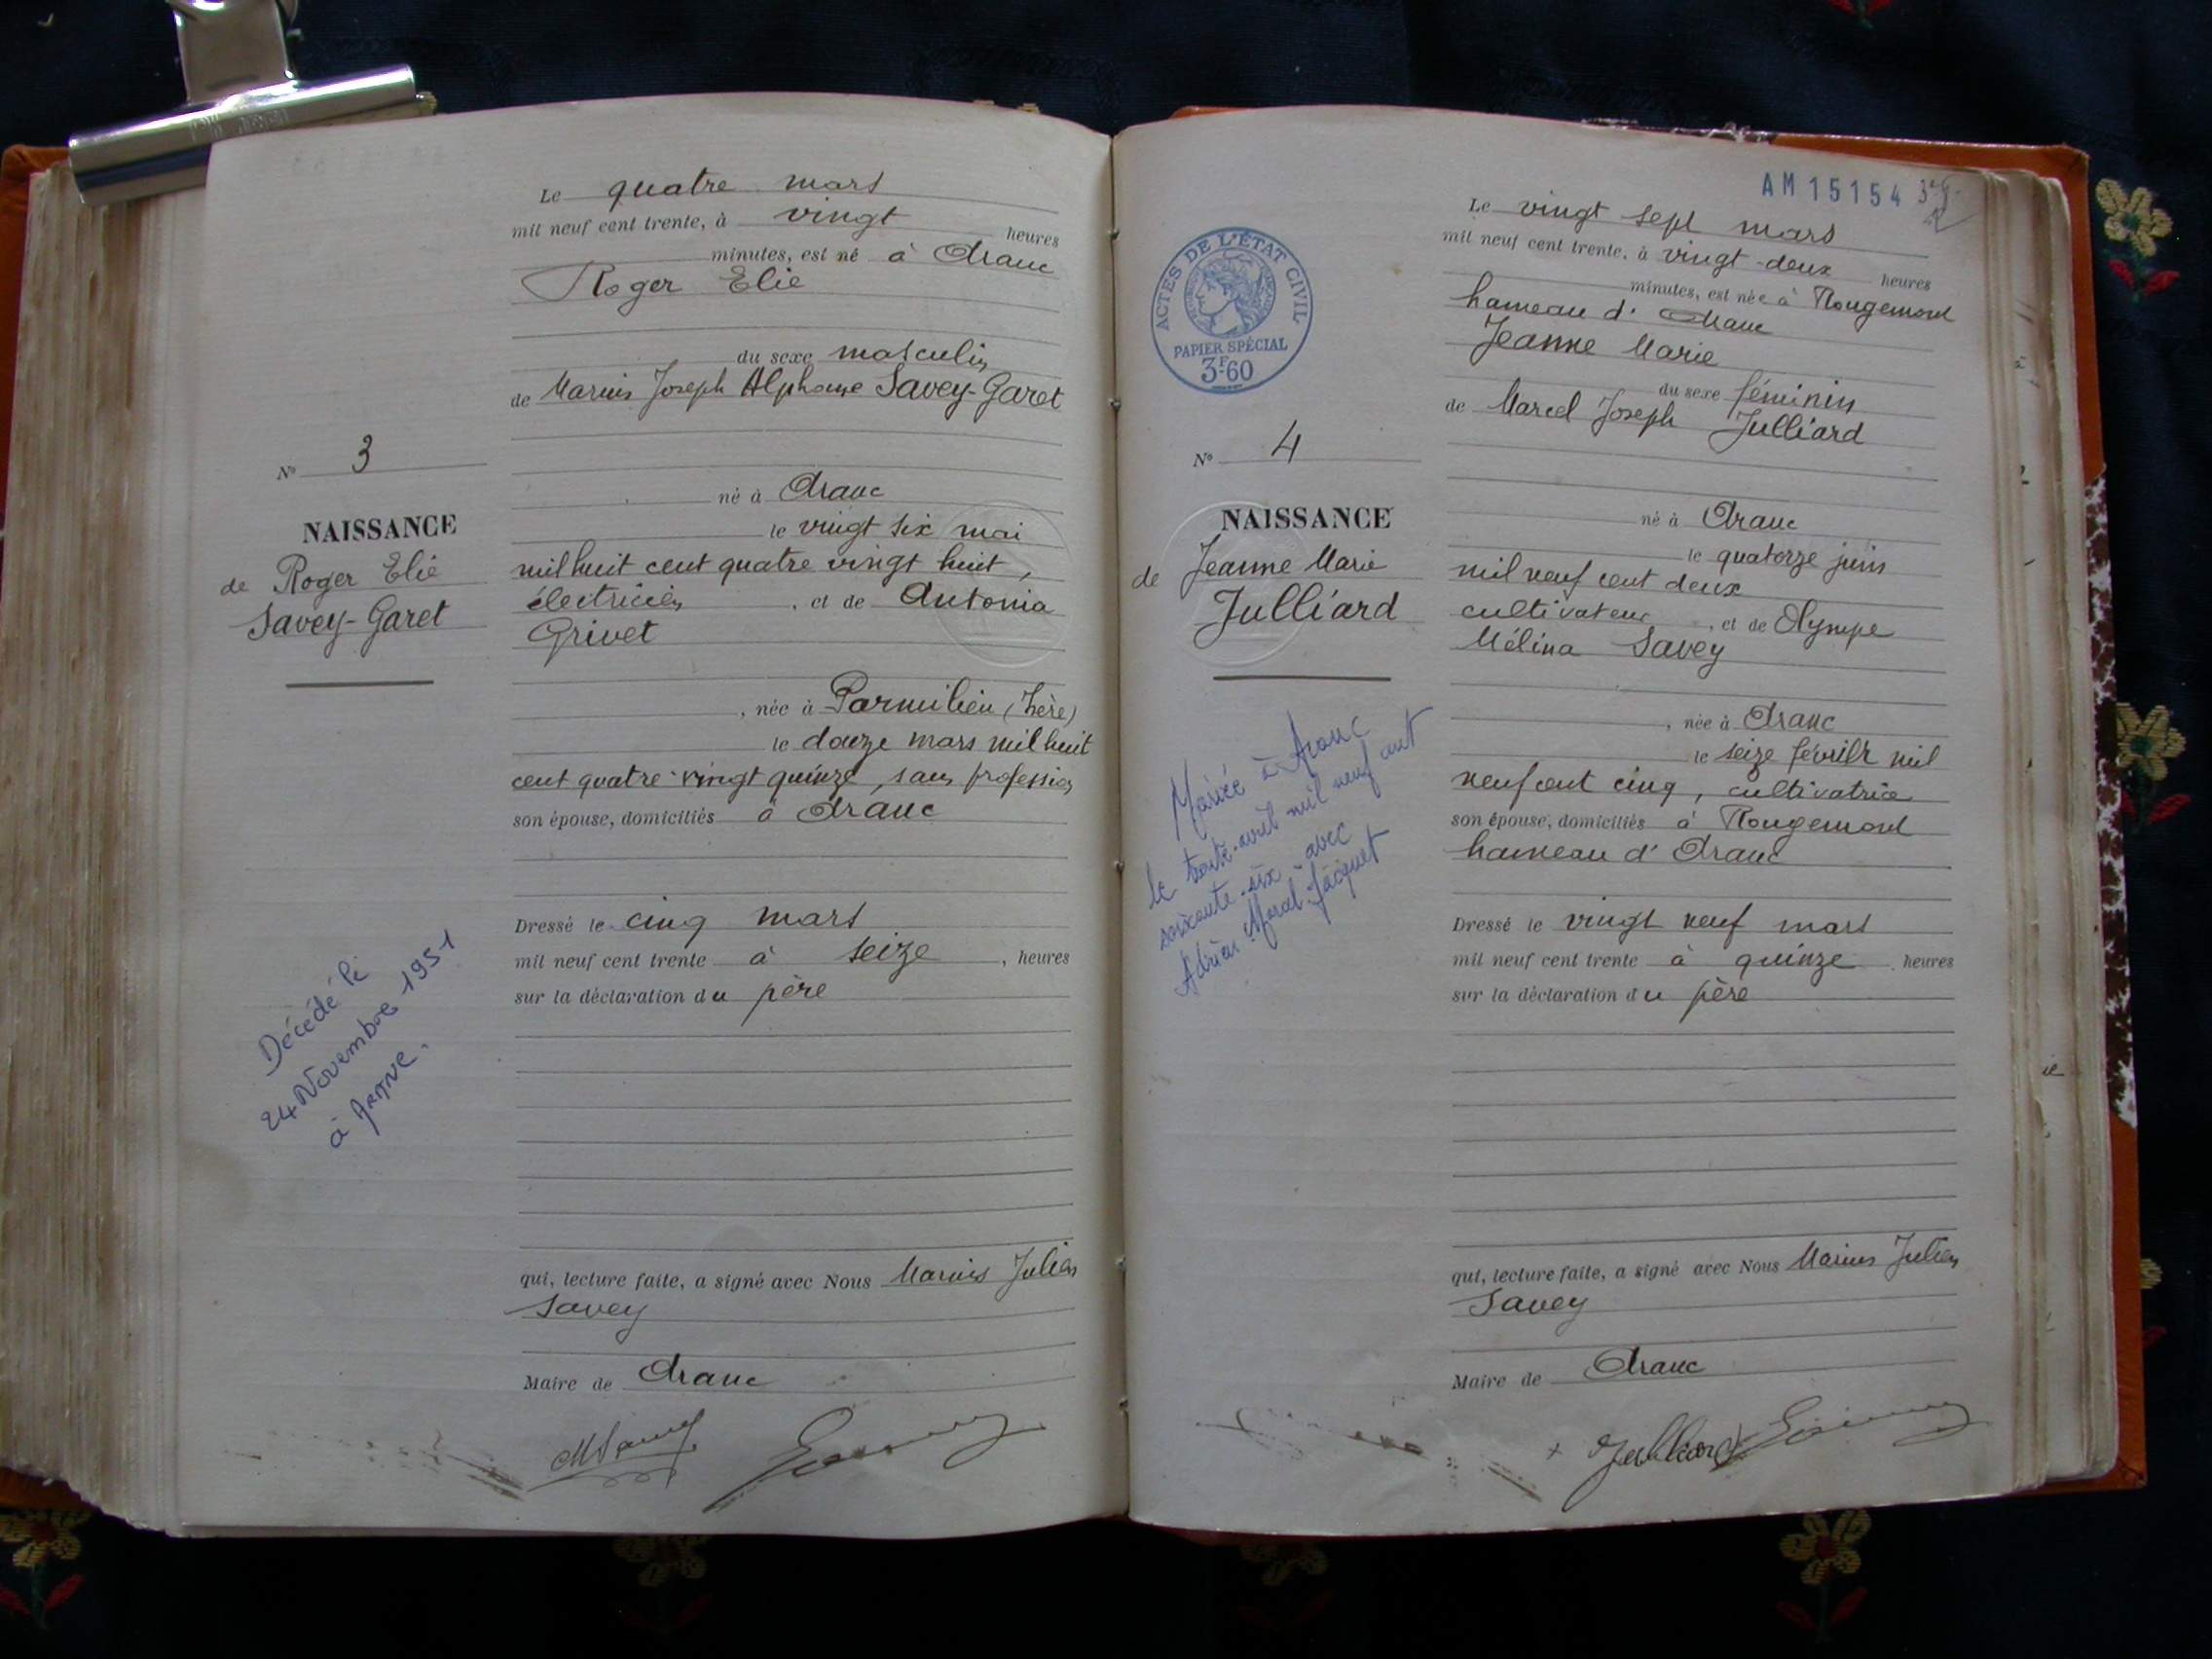 Le quatre mars
mil neuf cent trente, à vingt heures
minutes, est né à Aranc
Roger Elie
du sexe masculin
de Marius Joseph Alphonse Savey-Garet
N° 3
né à Aranc
NAISSANCE
le vingt six mai
de Roger Elie
Savey-Garet
mil huit cent quatre vingt huit,
électricien, et de Antonia
Grivet
, née à Parmilieu (Isère)
le douze mars mil huit
cent quatre vingt quinze, sans profession
son épouse, domiciliés à Aranc
Dressé le cinq mars
mil neuf cent trente à seize, heures
sur la déclaration du père
Décédé le
24 Novembre 1951
à Aranc.
qui, lecture faite, a signé avec Nous Marius Julien
Savey
Maire de Aranc
MSavey
AM 15154
Le vingt sept mars
mil neuf cent trente, à vingt-deux heures
minutes, est née à Rougemont
hameau d'Aranc
Jeanne Marie
du sexe féminin
de Marcel Joseph Julliard
ACTES DE L'ÉTAT CIVIL
PAPIER SPÉCIAL
3F60
N° 4
né à Aranc
NAISSANCE
le quatorze juin
de Jeanne Marie
Julliard
mil neuf cent deux
cultivateur, et de Olympe
Mélina Savey
, née à Aranc
le seize février mil
neuf cent cinq, cultivatrice
son épouse, domiciliés à Rougemont
hameau d'Aranc
Mariée à Aranc
le trente avril mil neuf cent
soixante-six avec
Adrien Marcel Jacquet
Dressé le vingt neuf mars
mil neuf cent trente à quinze heures
sur la déclaration du père
qui, lecture faite, a signé avec Nous Marius Julien
Savey
Maire de Aranc
x Julliard